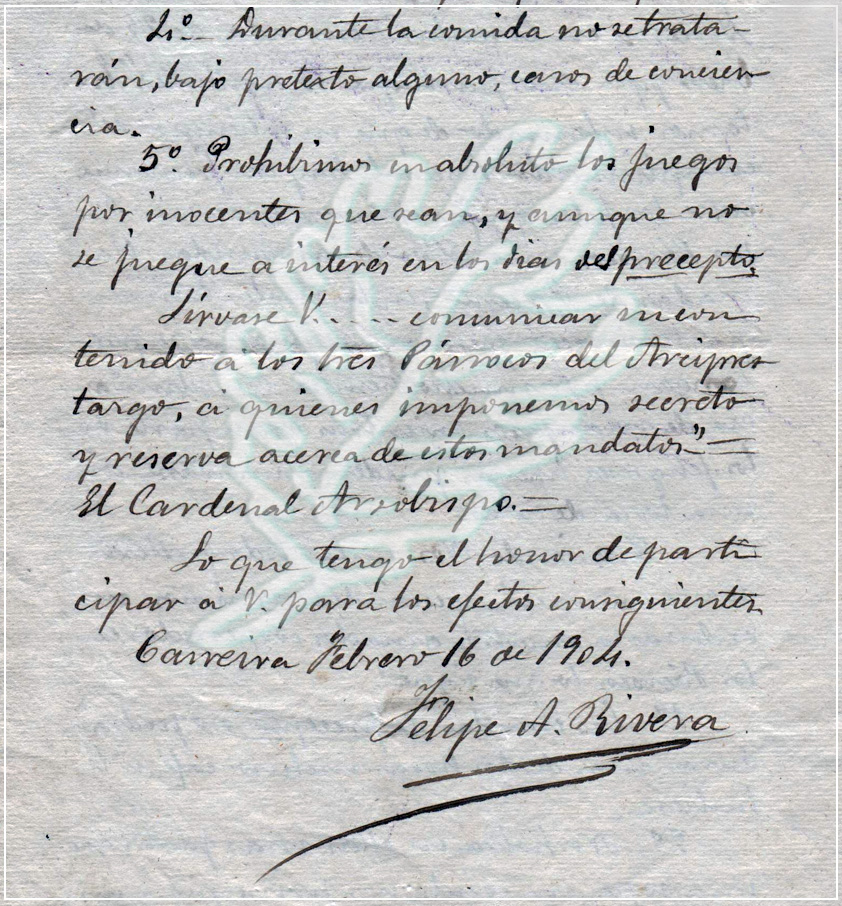 4º.- Durante la comida no se trata-
rán, bajo pretexto alguno, casos de concien-
cia.
5º. Prohibimos en absoluto los juegos
por inocentes que sean, y aunque no
se juegue a interés en los dias del precepto.
Sírvase V. .... comunicar su con
tenido á los tres Párrocos del Arcipres
tazgo, á quienes imponemos secreto
y reserva acerca de estos mandatos."=
El Cardenal Arzobispo.=
Lo que tengo el honor de parti
cipar á V. para los efectos consiguientes
Carreira Febrero 16 de 1904.
Felipe A. Rivera